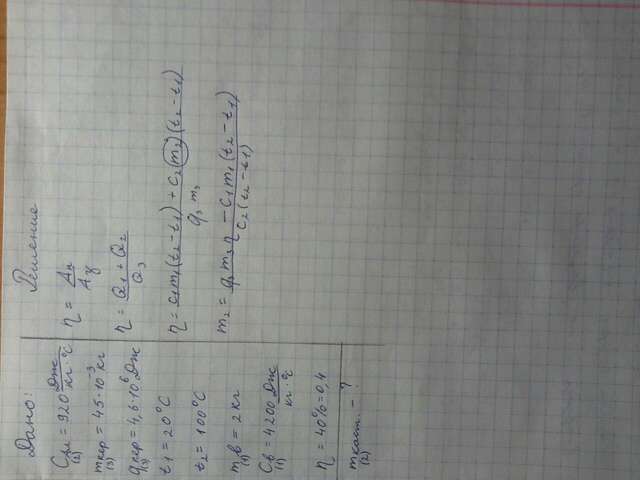 Дано:
C ал = 920 Дж / кг · °C
(2)
m кер = 45 · 10³ кг
(3)
q кер = 4,6 · 10⁶ Дж
(3)
t₁ = 20°C
t₂ = 100°C
m в = 2 кг
(1)
C в = 4200 Дж / кг · °C
(1)
η = 40% = 0,4
m каст. - ?
(2)
Решение
η = Aп / Aз
η = Q₁ + Q₂ / Q₃
η = c₁m₁(t₂ - t₁) + c₂m₂(t₂ - t₁) / q₃ m₃
m₂ = q₃m₃η - c₁m₁(t₂ - t₁) / c₂(t₂ - t₁)